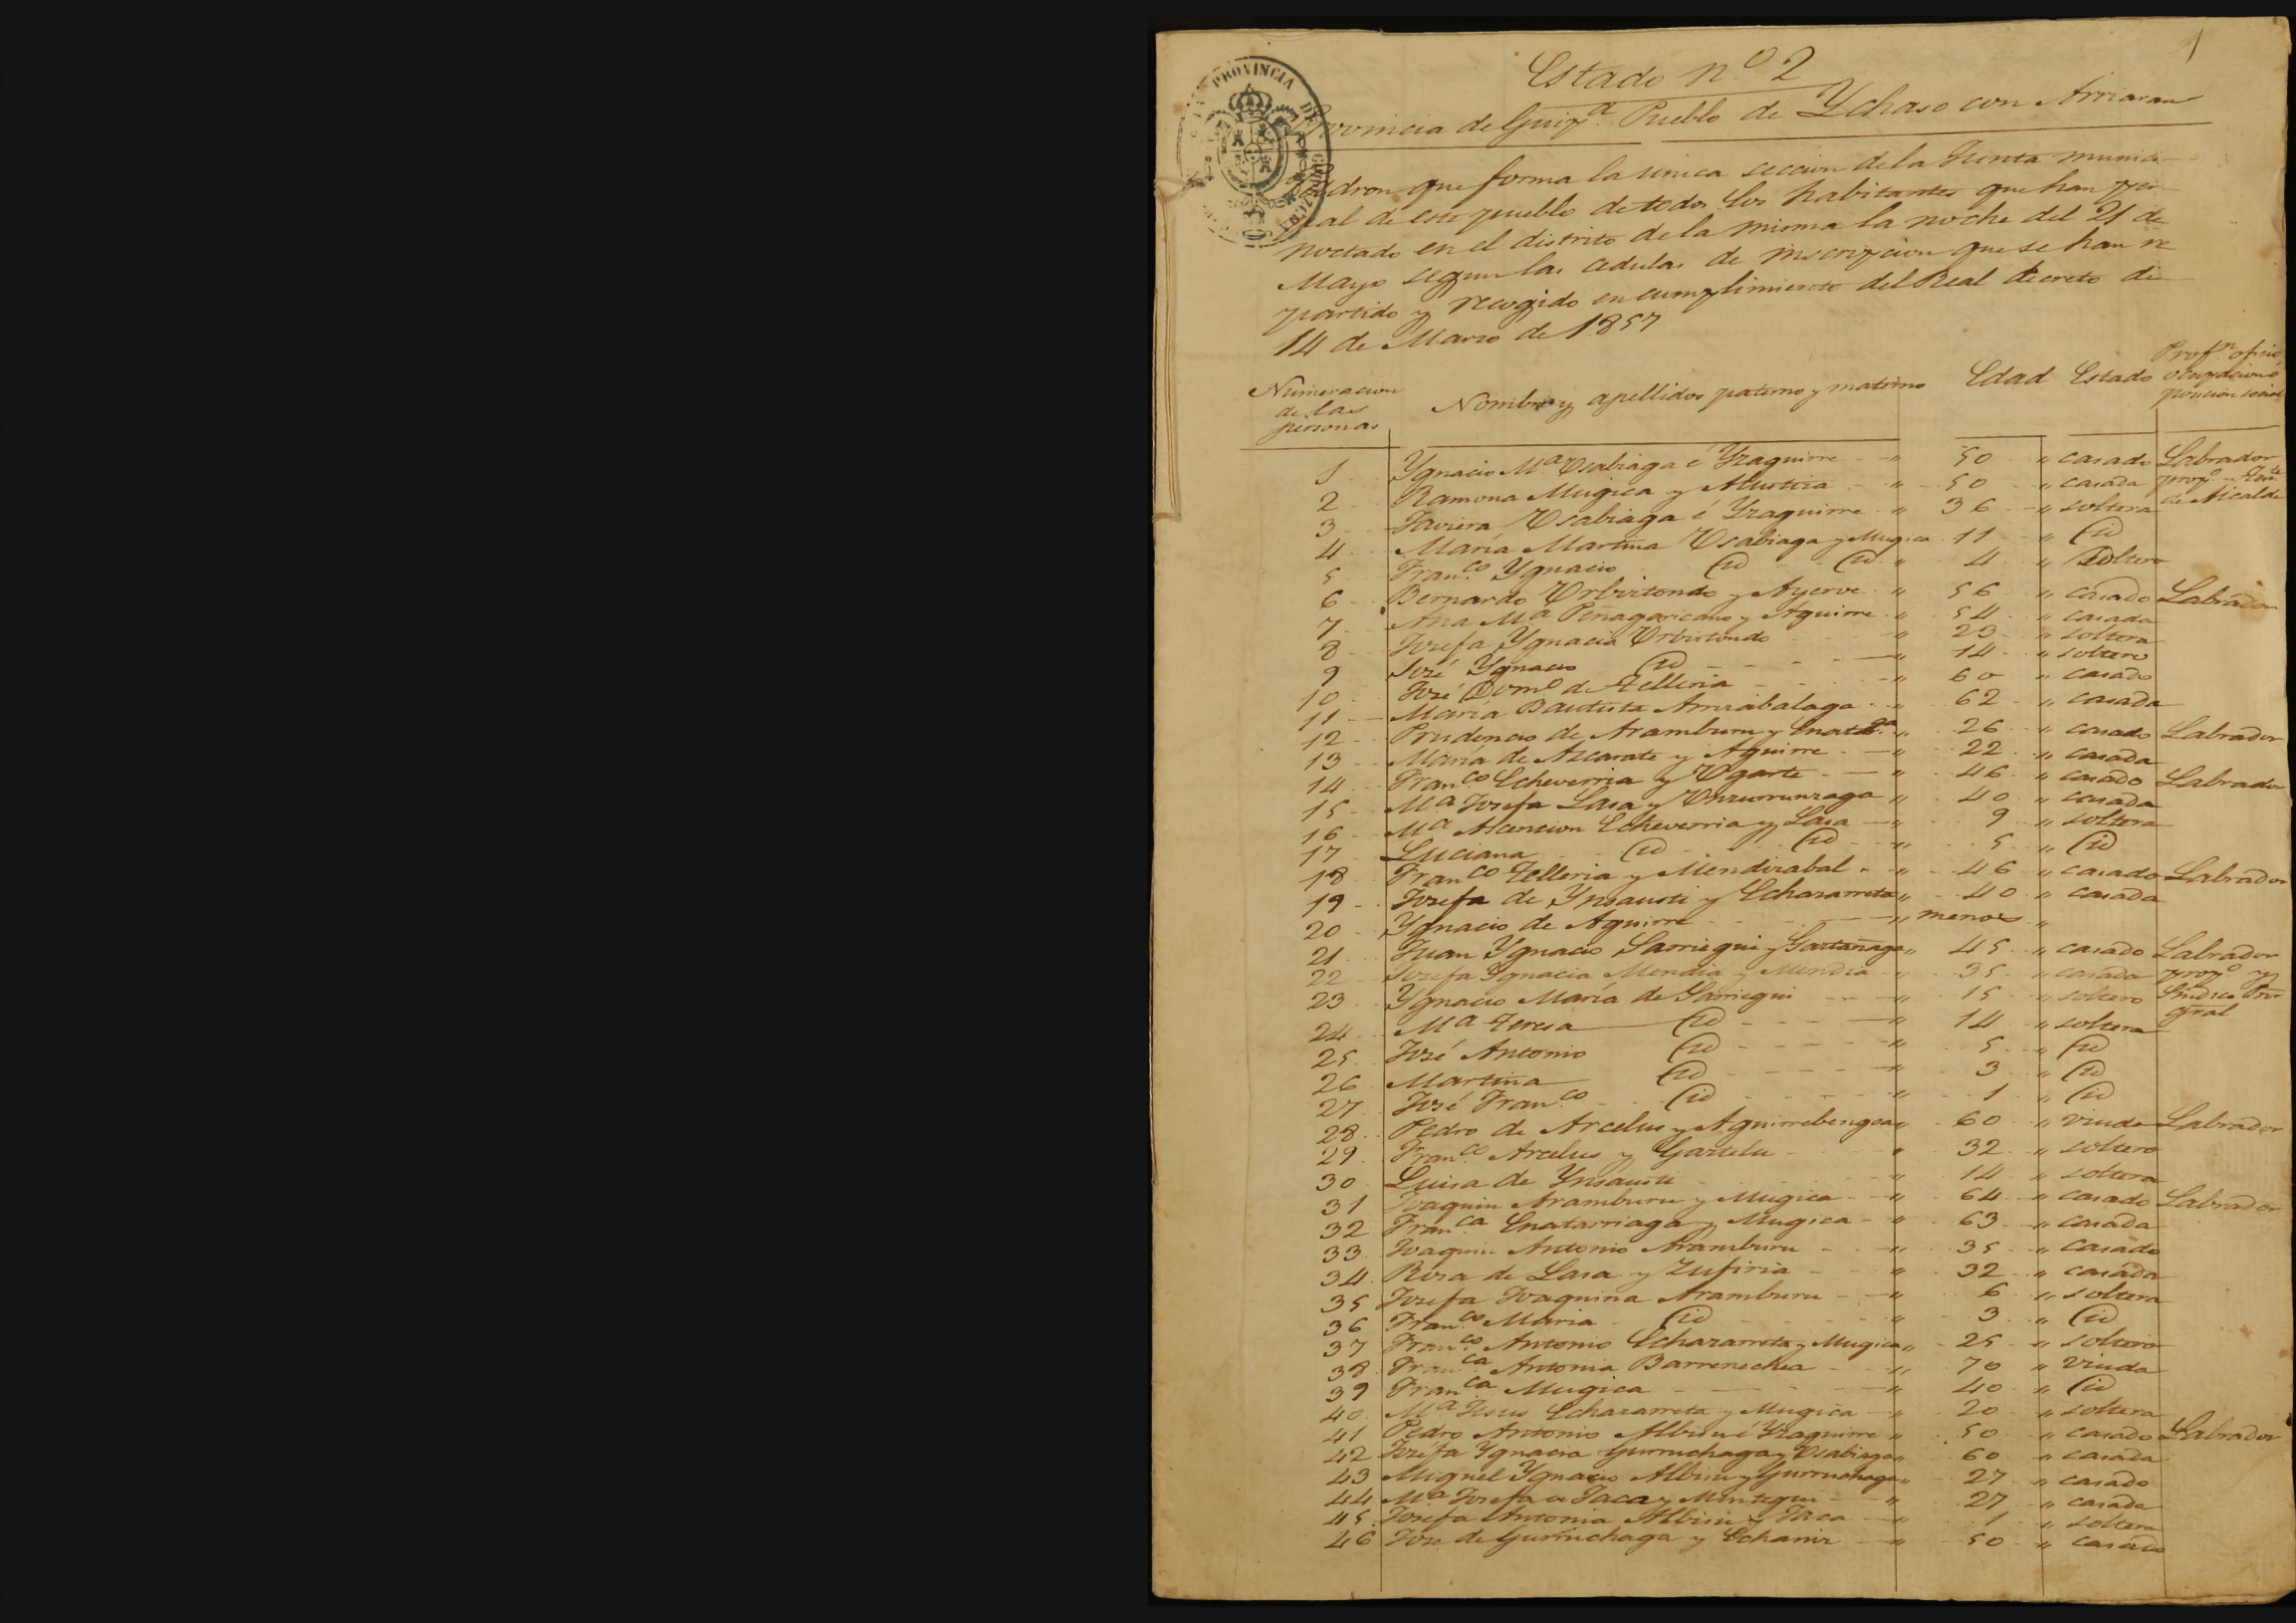 1
PROVINCIA DE GUIPUZCOA
Estado nº 2
Provincia de Guipª. Pueblo de Ychaso con Arriaran
Padron que forma la unica seccion de la Junta munici-
pal de este pueblo de todos los habitantes que han per-
noctado en el distrito de la misma la noche del 21 de
Mayo segun las cedulas de inscripcion que se han re
partido y recogido en cumplimiento del Real decreto de
14 de Marzo de 1857
Numeracion de las personas Nombre y apellidos paterno y materno Edad Estado Profⁿ oficio, ocupacion o posicion social
1 Ygnacio Mª Usabiaga é Yzaguirre " 50 " casado Labrador
2 Ramona Mugica y Alustiza " 50 " casada propº y Tente
3 Javiera Usabiaga é Yzaguirre " 36 " soltera de Alcalde
4 María Martina Usabiaga y Mugica 11 " id
5 Franco Ygnacio id id " 4 " soltero
6 Bernardo Urbiztondo y Ayerve " 56 " casado Labrador
7 Ana Mª Peñagaricano y Aguirre " 54 " casada
8 Josefa Ygnacia Urbiztondo " 23 " soltera
9 José Ygnacio id " 14 " soltero
10 José Domº de Telleria " 60 " casado
11 María Bautista Arrizabalaga " 62 " casada
12 Prudencio de Aramburu y Enatªga " 26 " casado Labrador
13 María de Azcarate y Aguirre " 22 " casada
14 Franco Echeverria y Ugarte " 46 " casado Labrador
15 Mª Josefa Lasa y Unzurrunzaga " 40 " casada
16 Mª Ascencion Echeverria y Lasa " 9 " soltera
17 Luciana id id " 5 " id
18 Franco Telleria y Mendizabal " 46 " casado Labrador
19 Josefa de Ynsausti y Echazarreta " 40 " casada
20 Ygnacio de Aguirre " menor "
21 Juan Ygnacio Sarriegui y Gastañaga " 45 " casado Labrador
22 Josefa Ygnacia Mendia y Mendia " 35 " casada propº y
23 Ygnacio María de Sarriegui " 15 " soltero Sindico Pro-
24 Mª Teresa id " 14 " soltera gral
25 José Antonio id " 5 " id
26 Martina id " 3 " id
27 José Franco id " 1 " id
28 Pedro de Arcelus y Aguirrebengoa " 60 " viudo Labrador
29 Franco Arcelus y Garitelu " 32 " soltero
30 Luisa de Ynsausti " 14 " soltera
31 Joaquin Aramburu y Mugica " 64 " casado Labrador
32 Franca Enatarriaga y Mugica " 63 " casada
33 Joaquin Antonio Aramburu " 35 " casado
34 Rosa de Lasa y Zufiria " 32 " casada
35 Josefa Joaquina Aramburu " 6 " soltera
36 Franco Maria id " 3 " id
37 Franco Antonio Echazarreta y Mugica " 25 " soltero
38 Franca Antonia Barrenechea " 70 " viuda
39 Franca Mugica " 40 " id
40 Mª Jesus Echazarreta y Mugica " 20 " soltera
41 Pedro Antonio Albisu é Yzaguirre " 50 " casado Labrador
42 Josefa Ygnacia Gurruchaga y Usabiaga " 60 " casada
43 Miguel Ygnacio Albisu y Gurruchaga " 27 " casado
44 Mª Josefa de Jaca y Mintegui " 27 " casada
45 Josefa Antonia Albisu y Jaca " 1 " soltera
46 Jose de Gurruchaga y Echaniz " 50 " casado